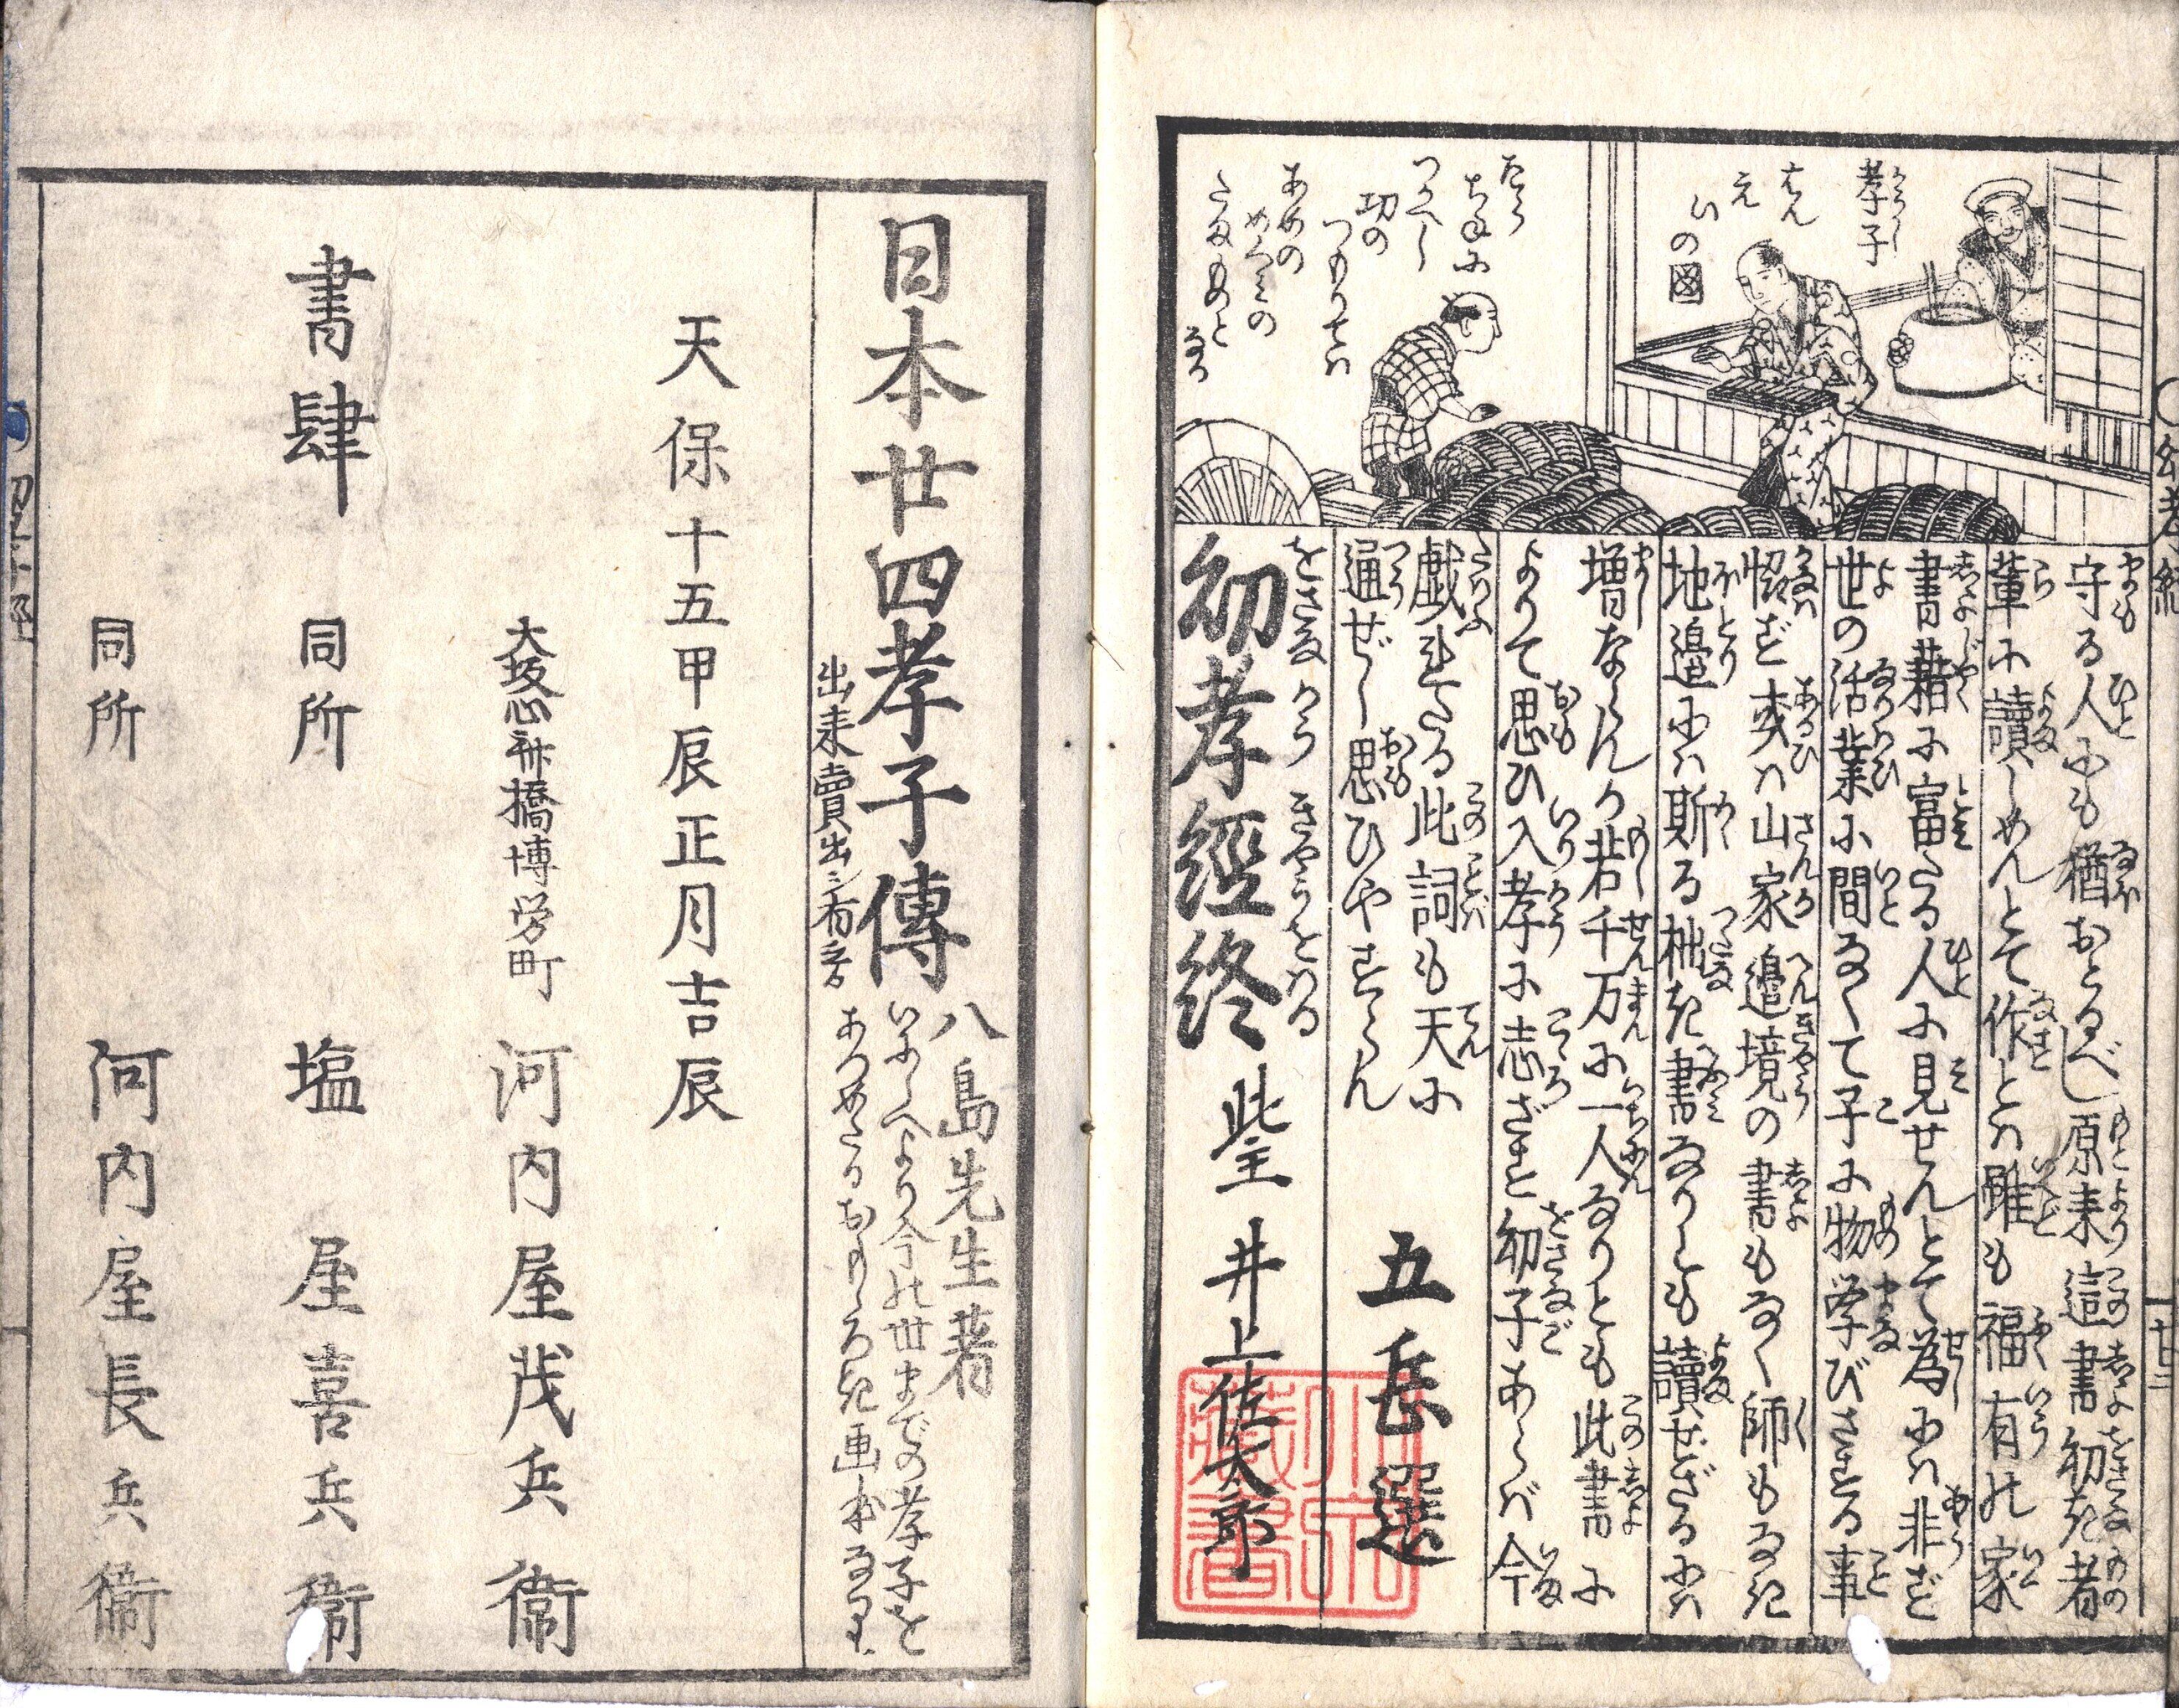 孝子
はん
えいの図
功の
つもりては
あめの
めくみの
たまものと
なる
守る人にも猶おとるべし原来這書幼き者
輩に讀しめんとて作とハ雖も福有の家
書籍に富たる人に見せんとて為にハ非ず
世の活業に間なくて子に物学びさする事
惱ず或ハ山家邉境の書もなく師もなき
地邉にハ斯る拙き書なりとも讀ぜざるにハ
増ならんか若千万に一人なりとも此書に
よりて思ひ入孝に志ざすと幼子あらバ今
戯れたる此詞も天に
通ぜし思ひやすらん
五岳選
幼孝經終
をさなかうきやうをはる
井上佐太郎
廿三
日本廿四孝子傳
八島先生著
いにしへより今の世までの孝子を
あつめたるおもしろき画本なり
出来賣出シ有之
天保十五甲辰正月吉辰
書肆
大坂心斎橋博労町
河内屋茂兵衛
同所
塩屋喜兵衛
同所
河内屋長兵衛